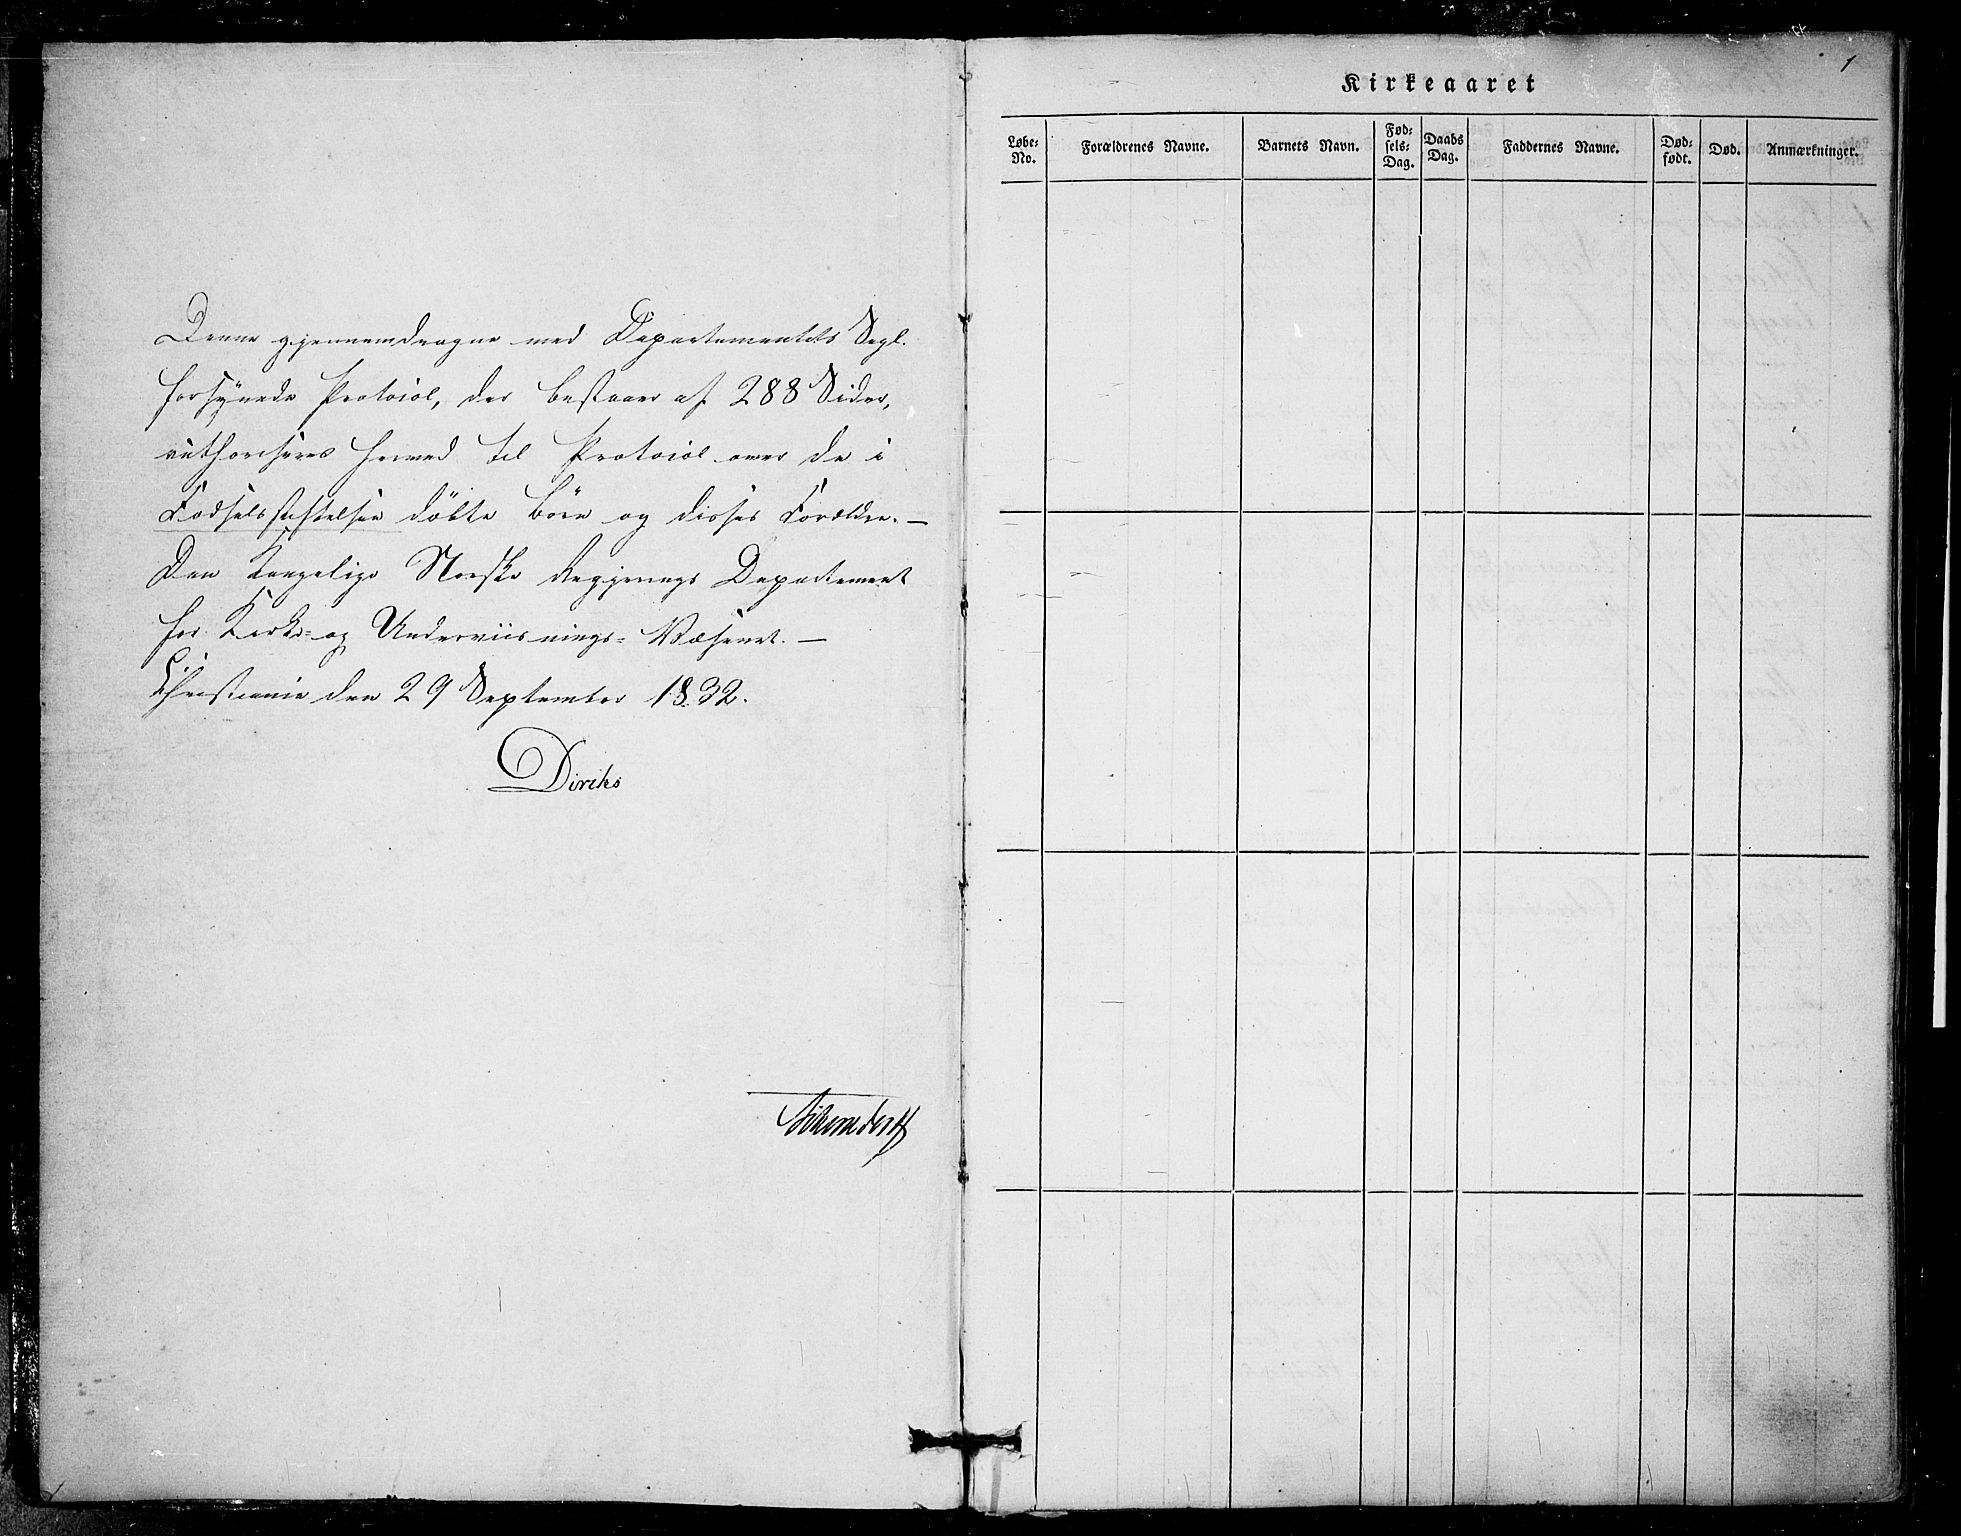 Denne gjennemdragne med Departementets Segl.
forsynede Protocol, der bestaaer af 288 Sider,
authoriseres herved til Protocol over de i
Fødselsstiftelsen døbte Børn og disses Forældre. —
Den Kongelige Norske Regjerings Departement
for Kirke- og Underviisnings- Væsenet. —
Christiania den 29 September 1832.
Diriks
1
Kirkeaaret
Løbe-
No.
Forældrenes Navne.
Barnets Navn.
Fød-
sels-
Dag.
Daabs
Dag.
Faddernes Navne.
Død-
født.
Død.
Anmærkninger.